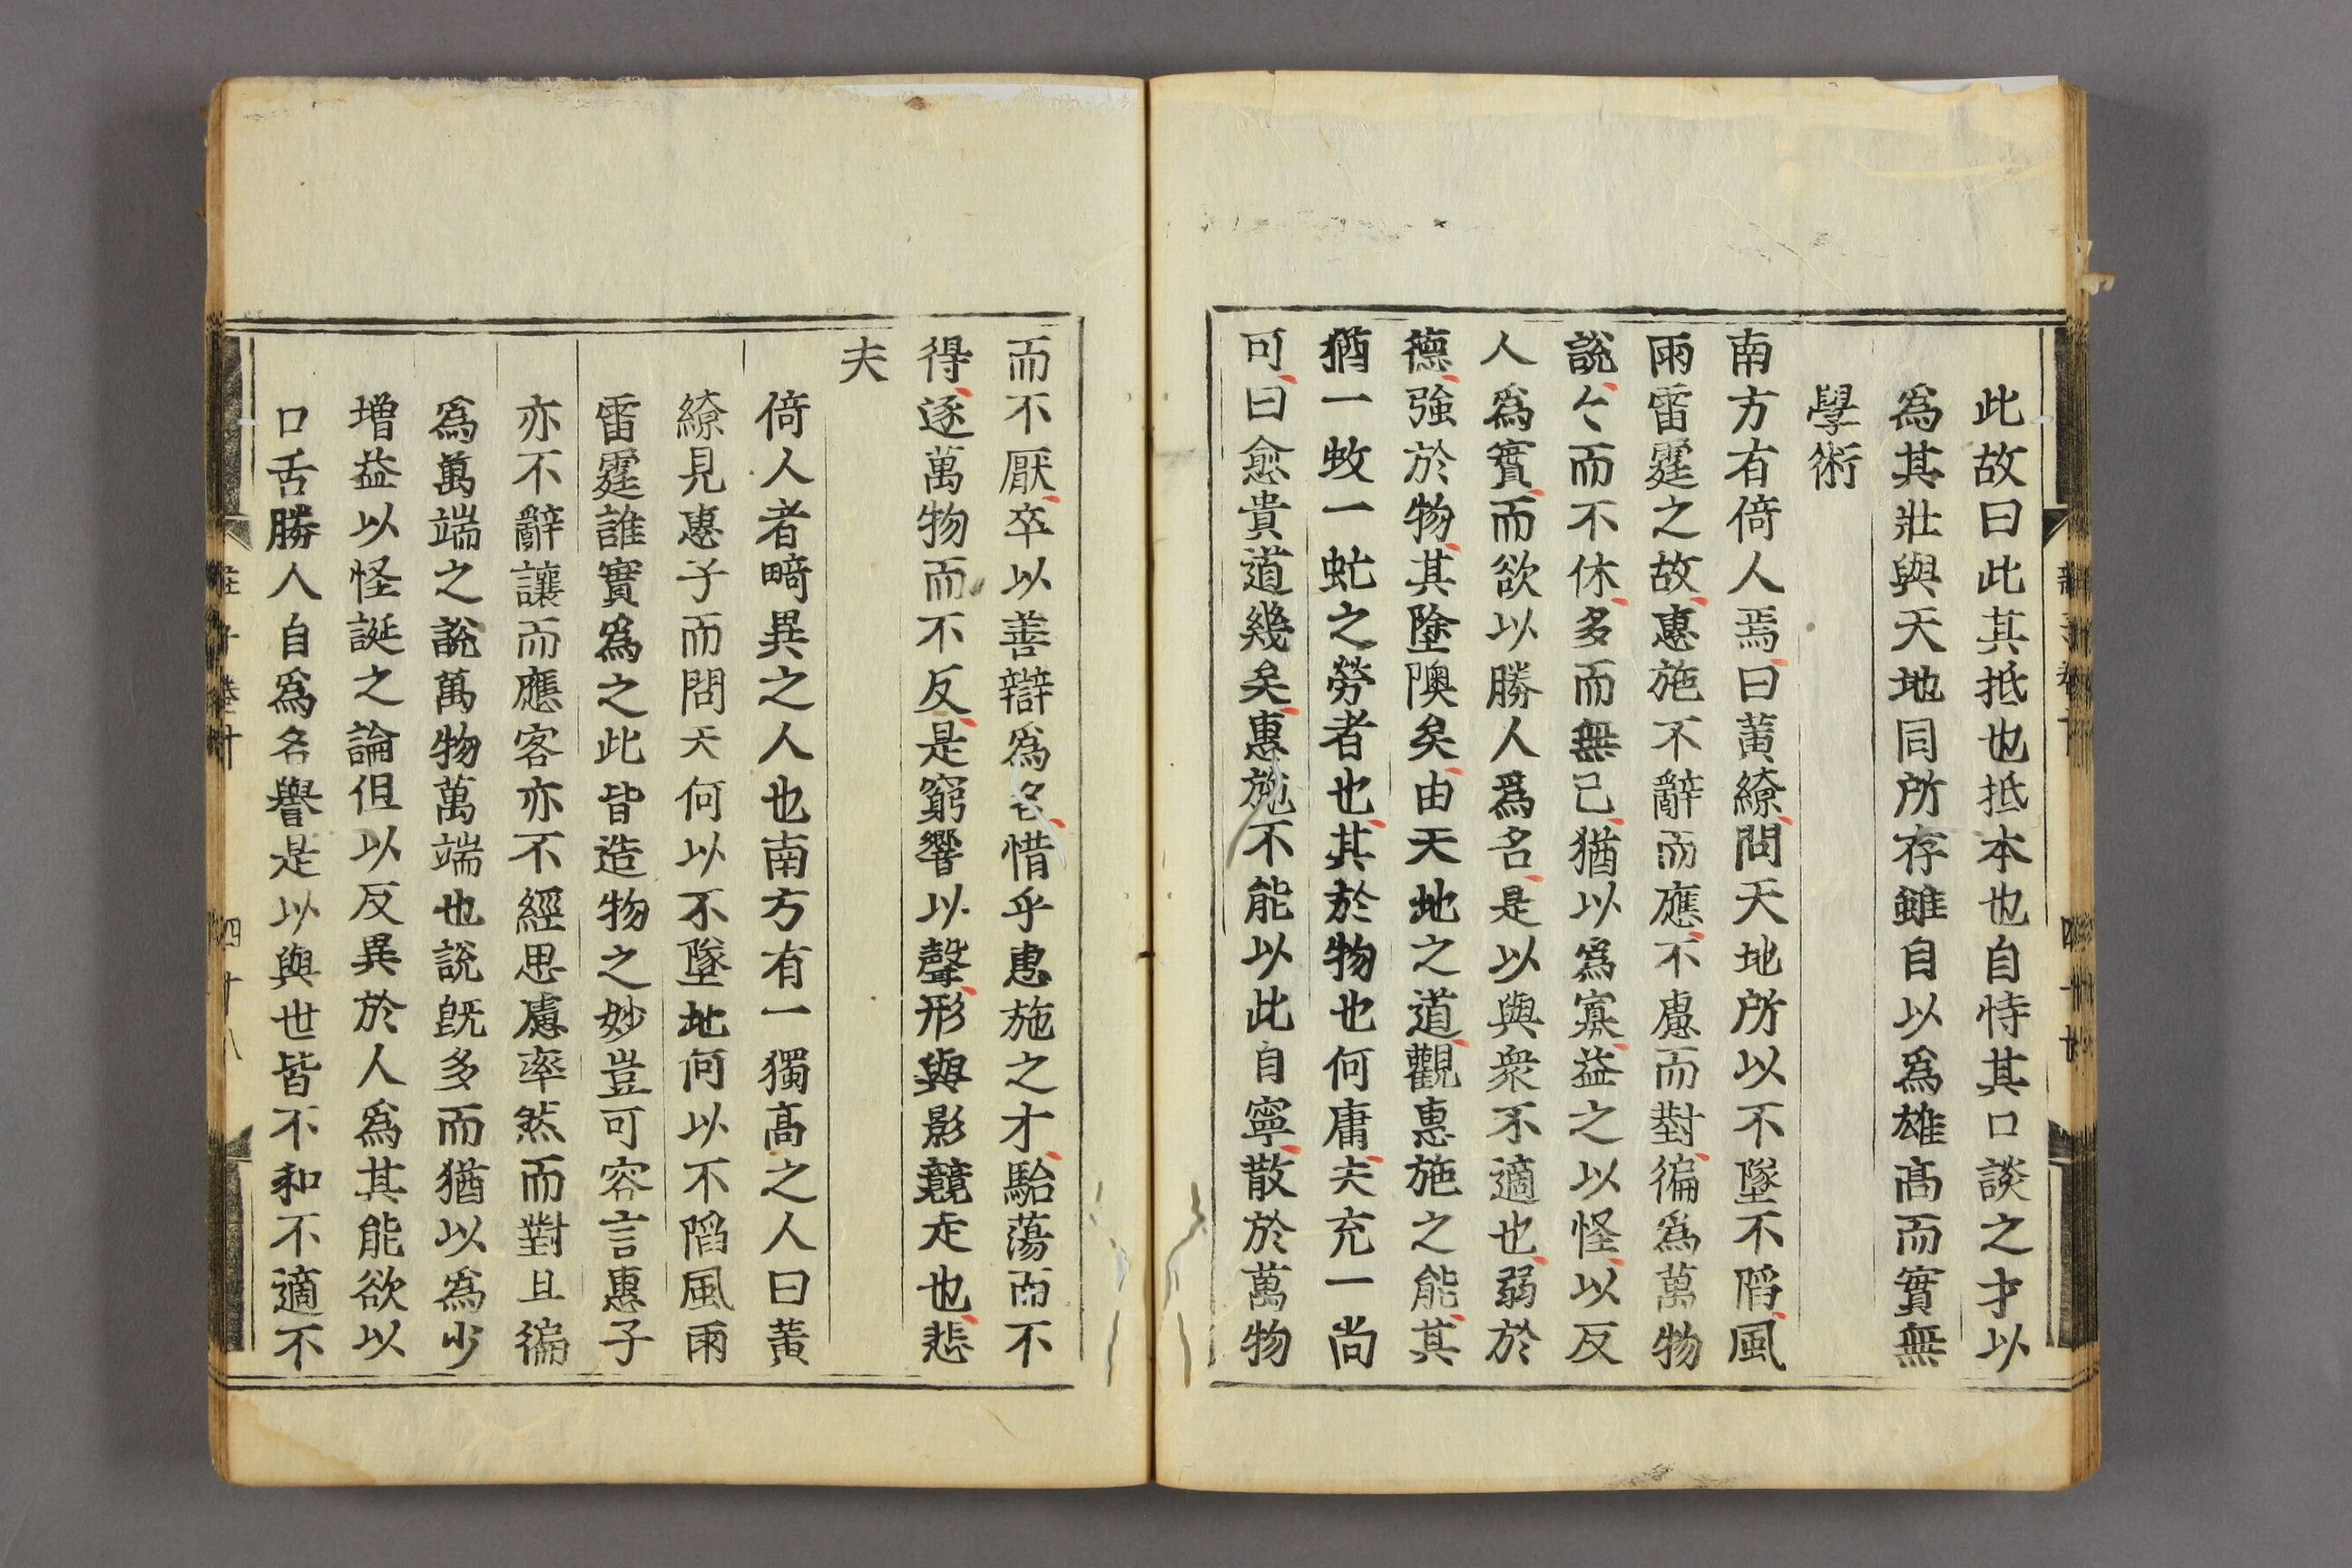 此故曰此其抵也抵本也自恃其口談之才以
爲其壯與天地同所存雖自以爲雄髙而實無
學術
南方有倚人焉曰黃繚問天地所以不墜不䧟風
雨雷霆之故惠施不辭而應不慮而對徧爲萬物
說〻而不休多而無已猶以爲寡益之以怪以反
人爲實而欲以勝人爲名是以與衆不適也弱於
德強於物其塗隩矣由天地之道觀惠施之能其
猶一蚊一虻之勞者也其於物也何庸夫充一尚
可曰愈貴道幾矣惠施不能以此自寧散於萬物
而不厭卒以善辯爲名惜乎惠施之才駘蕩而不
得逐萬物而不反是窮響以聲形與影競走也悲
夫
倚人者畸異之人也南方有一獨髙之人曰黃
繚見惠子而問天何以不墜地何以不䧟風雨
雷霆誰實爲之此皆造物之妙豈可容言惠子
亦不辭讓而應客亦不經思慮率然而對且徧
爲萬端之說萬物萬端也說旣多而猶以爲少
增益以怪誕之論但以反異於人爲其能欲以
口舌勝人自爲名譽是以與世皆不和不適不
莊子卷十
四十八